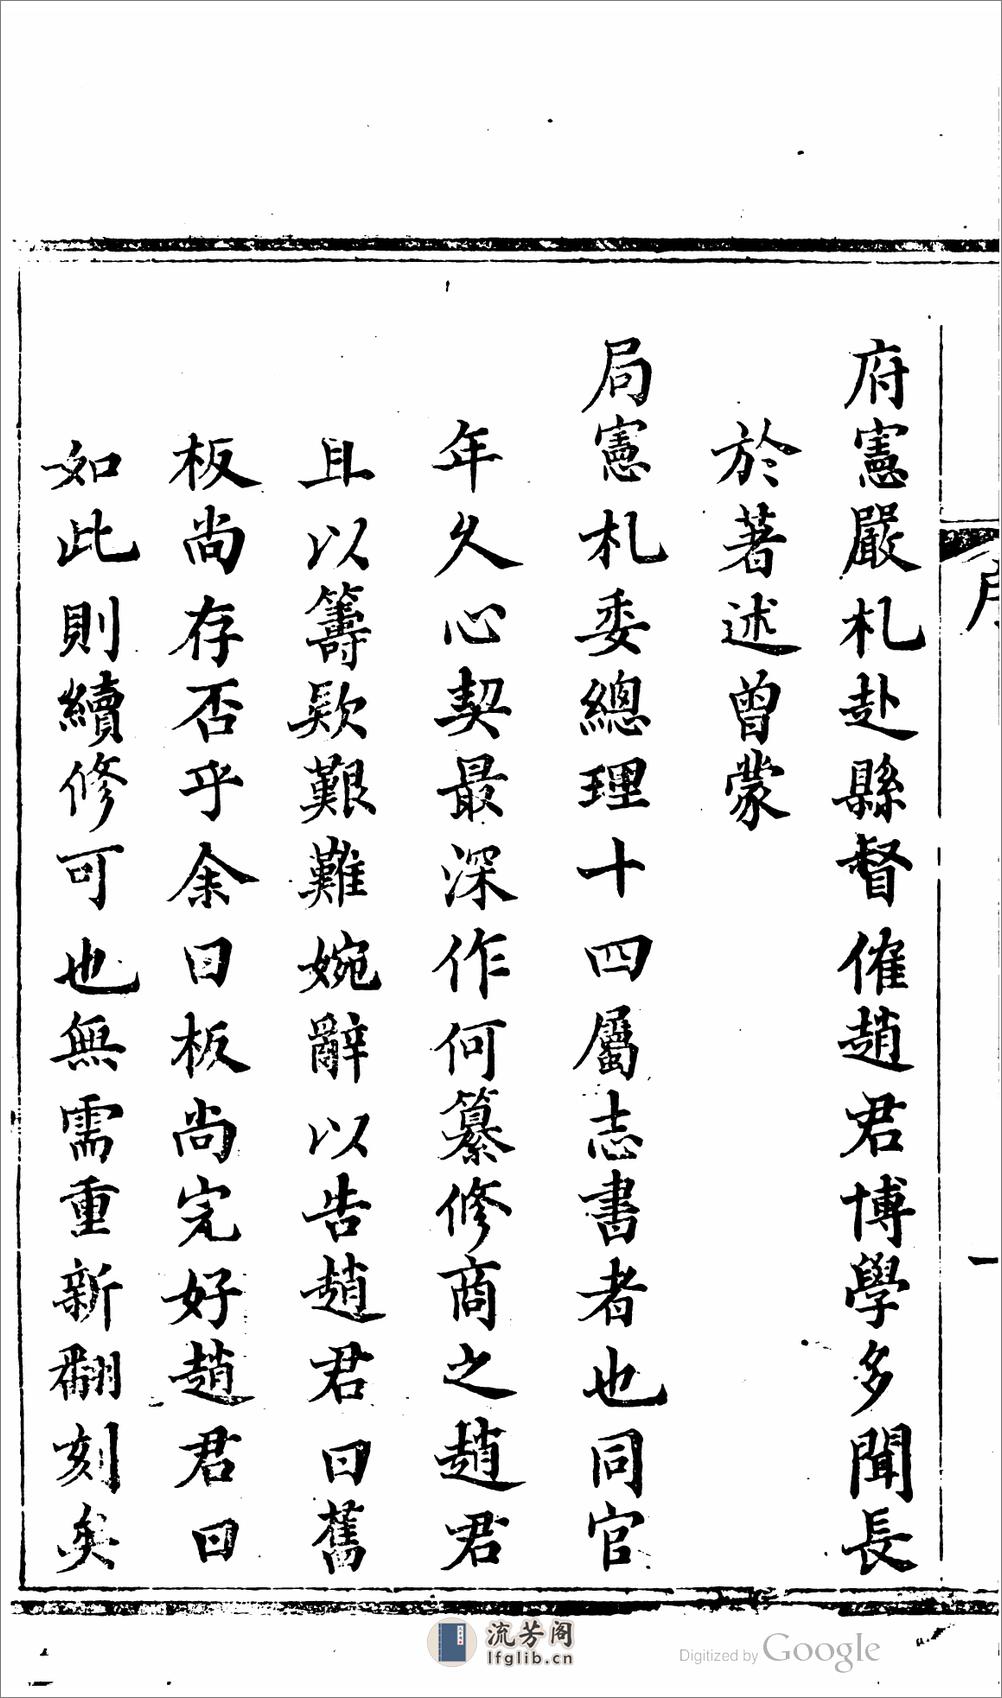 府憲嚴札赴縣督催趙君博學多聞長
於著述曾蒙
局憲札委總理十四屬志書者也同官
年久心契最深作何纂修商之趙君
且以籌欵艱難婉辭以告趙君曰舊
板尚存否乎余曰板尚完好趙君曰
如此則續修可也無需重新翻刻矣
一
流芳阁
lfglib.cn
Digitized by Google